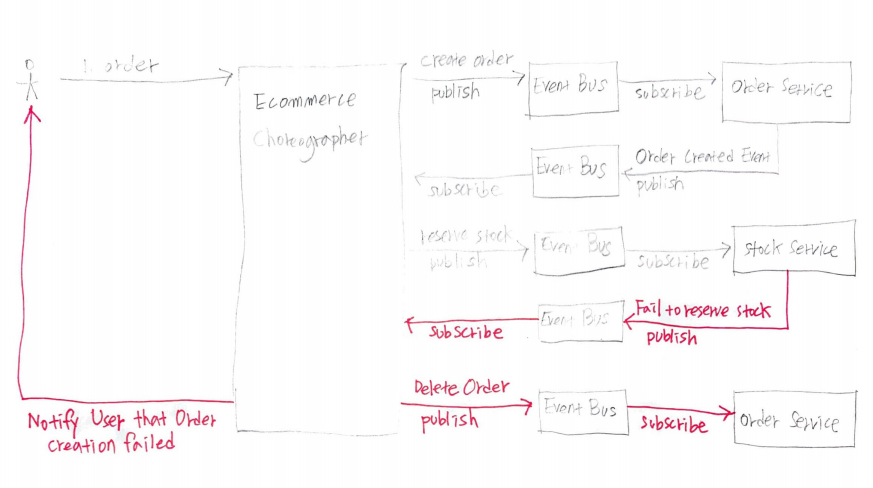 1. order
Ecommerce
Choreographer
create order
publish
Event Bus
subscribe
Order Service
Order Created Event
publish
Event Bus
subscribe
reserve stock
publish
Event Bus
subscribe
stock Service
Fail to reserve stock
publish
Event Bus
subscribe
Delete Order
publish
Event Bus
subscribe
Order Service
Notify User that Order
creation failed